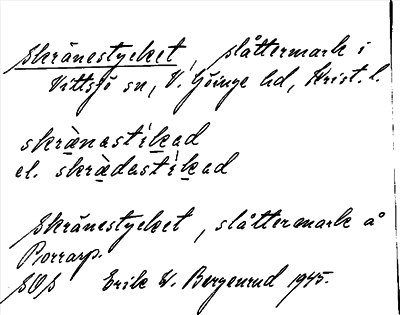 Skränestycket, slåttermark i
Vittsjö sn, V. Göinge hd, Krist. l.
skrænastikad
el. skrædastikad
Skränestycket, slåttermark å
Porrarp.
SOS Erik W. Bergenrud 1945.